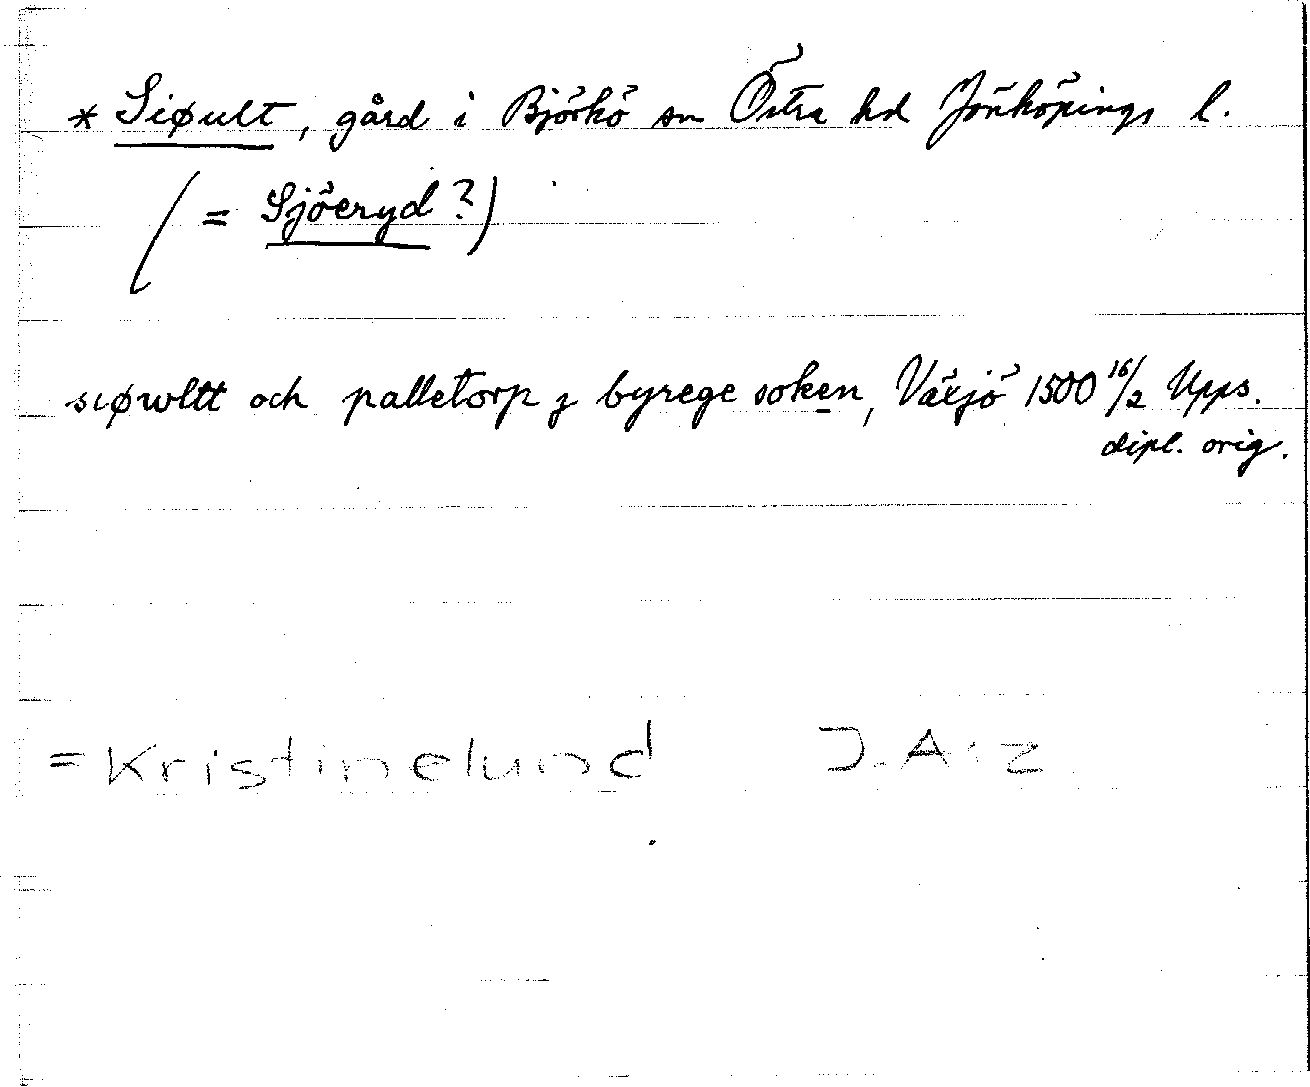 * Siøult, gård i Björkö sn Östra hd Jönköpings l.
(= Sjöeryd?)
siøwltt och palletorp ȝ byrege soken, Växjö 1500 16/2 Upps.
dipl. orig.
= Kristinelund J.A:z